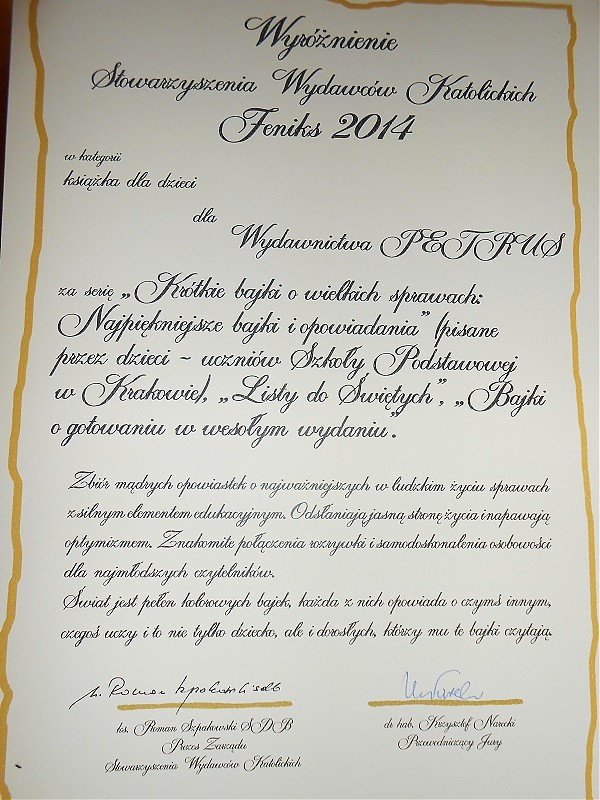 Wyróżnienie
Stowarzyszenia Wydawców Katolickich
Feniks 2014
w kategorii
książka dla dzieci
dla
Wydawnictwa PETRUS
za serię „Krótkie bajki o wielkich sprawach:
Najpiękniejsze bajki i opowiadania" (pisane
przez dzieci - uczniów Szkoły Podstawowej
w Krakowie), „Listy do Świętych", „Bajki
o gotowaniu w wesołym wydaniu".
Zbiór mądrych opowiastek o najważniejszych w ludzkim życiu sprawach
z silnym elementem edukacyjnym. Odsłaniają jasną stronę życia i napawają
optymizmem. Znakomite połączenia rozrywki i samodoskonalenia osobowości
dla najmłodszych czytelników.
Świat jest pełen kolorowych bajek, każda z nich opowiada o czymś innym,
czegoś uczy i to nie tylko dziecko, ale i dorosłych, którzy mu te bajki czytają.
ks. Roman Szpakowski sdb
ks. Roman Szpakowski SDB
Prezes Zarządu
Stowarzyszenia Wydawców Katolickich
dr hab. Krzysztof Narecki
Przewodniczący Jury